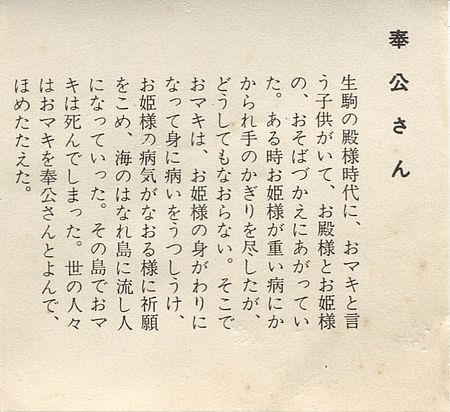 奉公さん
生駒の殿様時代に、おマキと言
う子供がいて、お殿様とお姫様
の、おそばづかえにあがってい
た。ある時お姫様が重い病にか
かられ手のかぎりを尽したが、
どうしてもなおらない。そこで
おマキは、お姫様の身がわりに
なって身に病いをうつしうけ、
お姫様の病気がなおる様に祈願
をこめ、海のはなれ島に流し人
になっていった。その島でおマ
キは死んでしまった。世の人々
はおマキを奉公さんとよんで、
ほめたたえた。